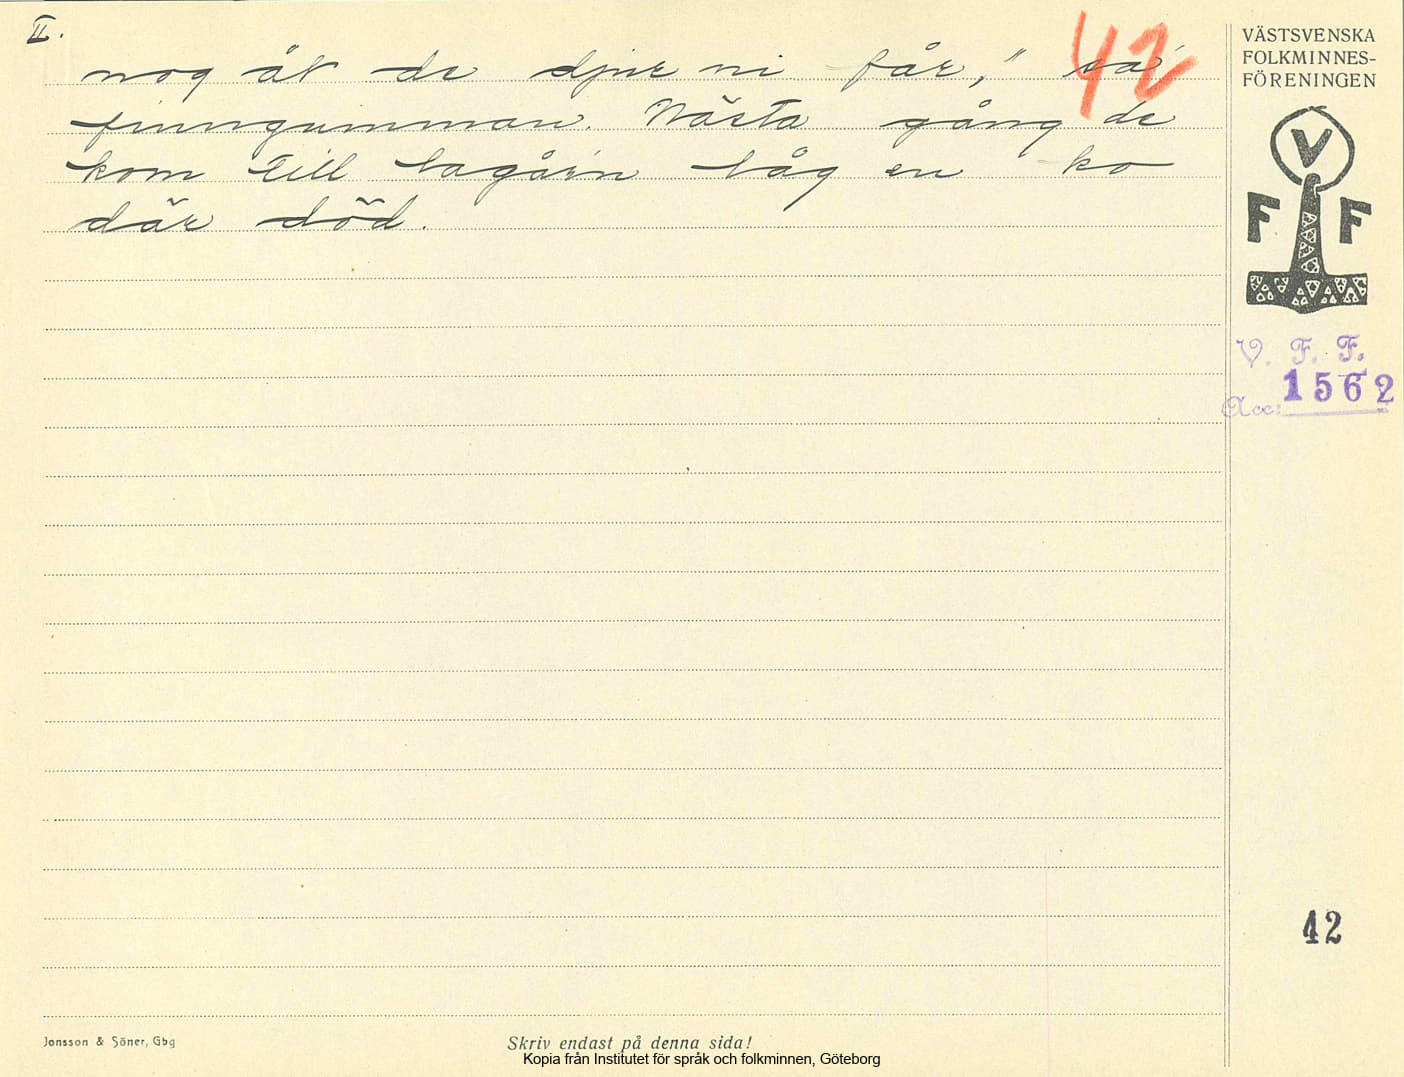 II.
42
nog åt de djur ni får," sa'
finngumman. Nästa gång de
kom till lagår'n låg en ko
där död.
VÄSTSVENSKA
FOLKMINNES-
FÖRENINGEN
V
F F
V. F. F.
Acc: 1562
42
Jonsson & Söner, Gbg
Skriv endast på denna sida!
Kopia från Institutet för språk och folkminnen, Göteborg